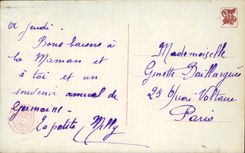 à jeudi -
Bons baisers à
ta Maman et à
à toi et un
souvenir amical de
Germaine.
la petite Milly
Mademoiselle
Ginette Baillargués
25 Quai Voltaire
Paris